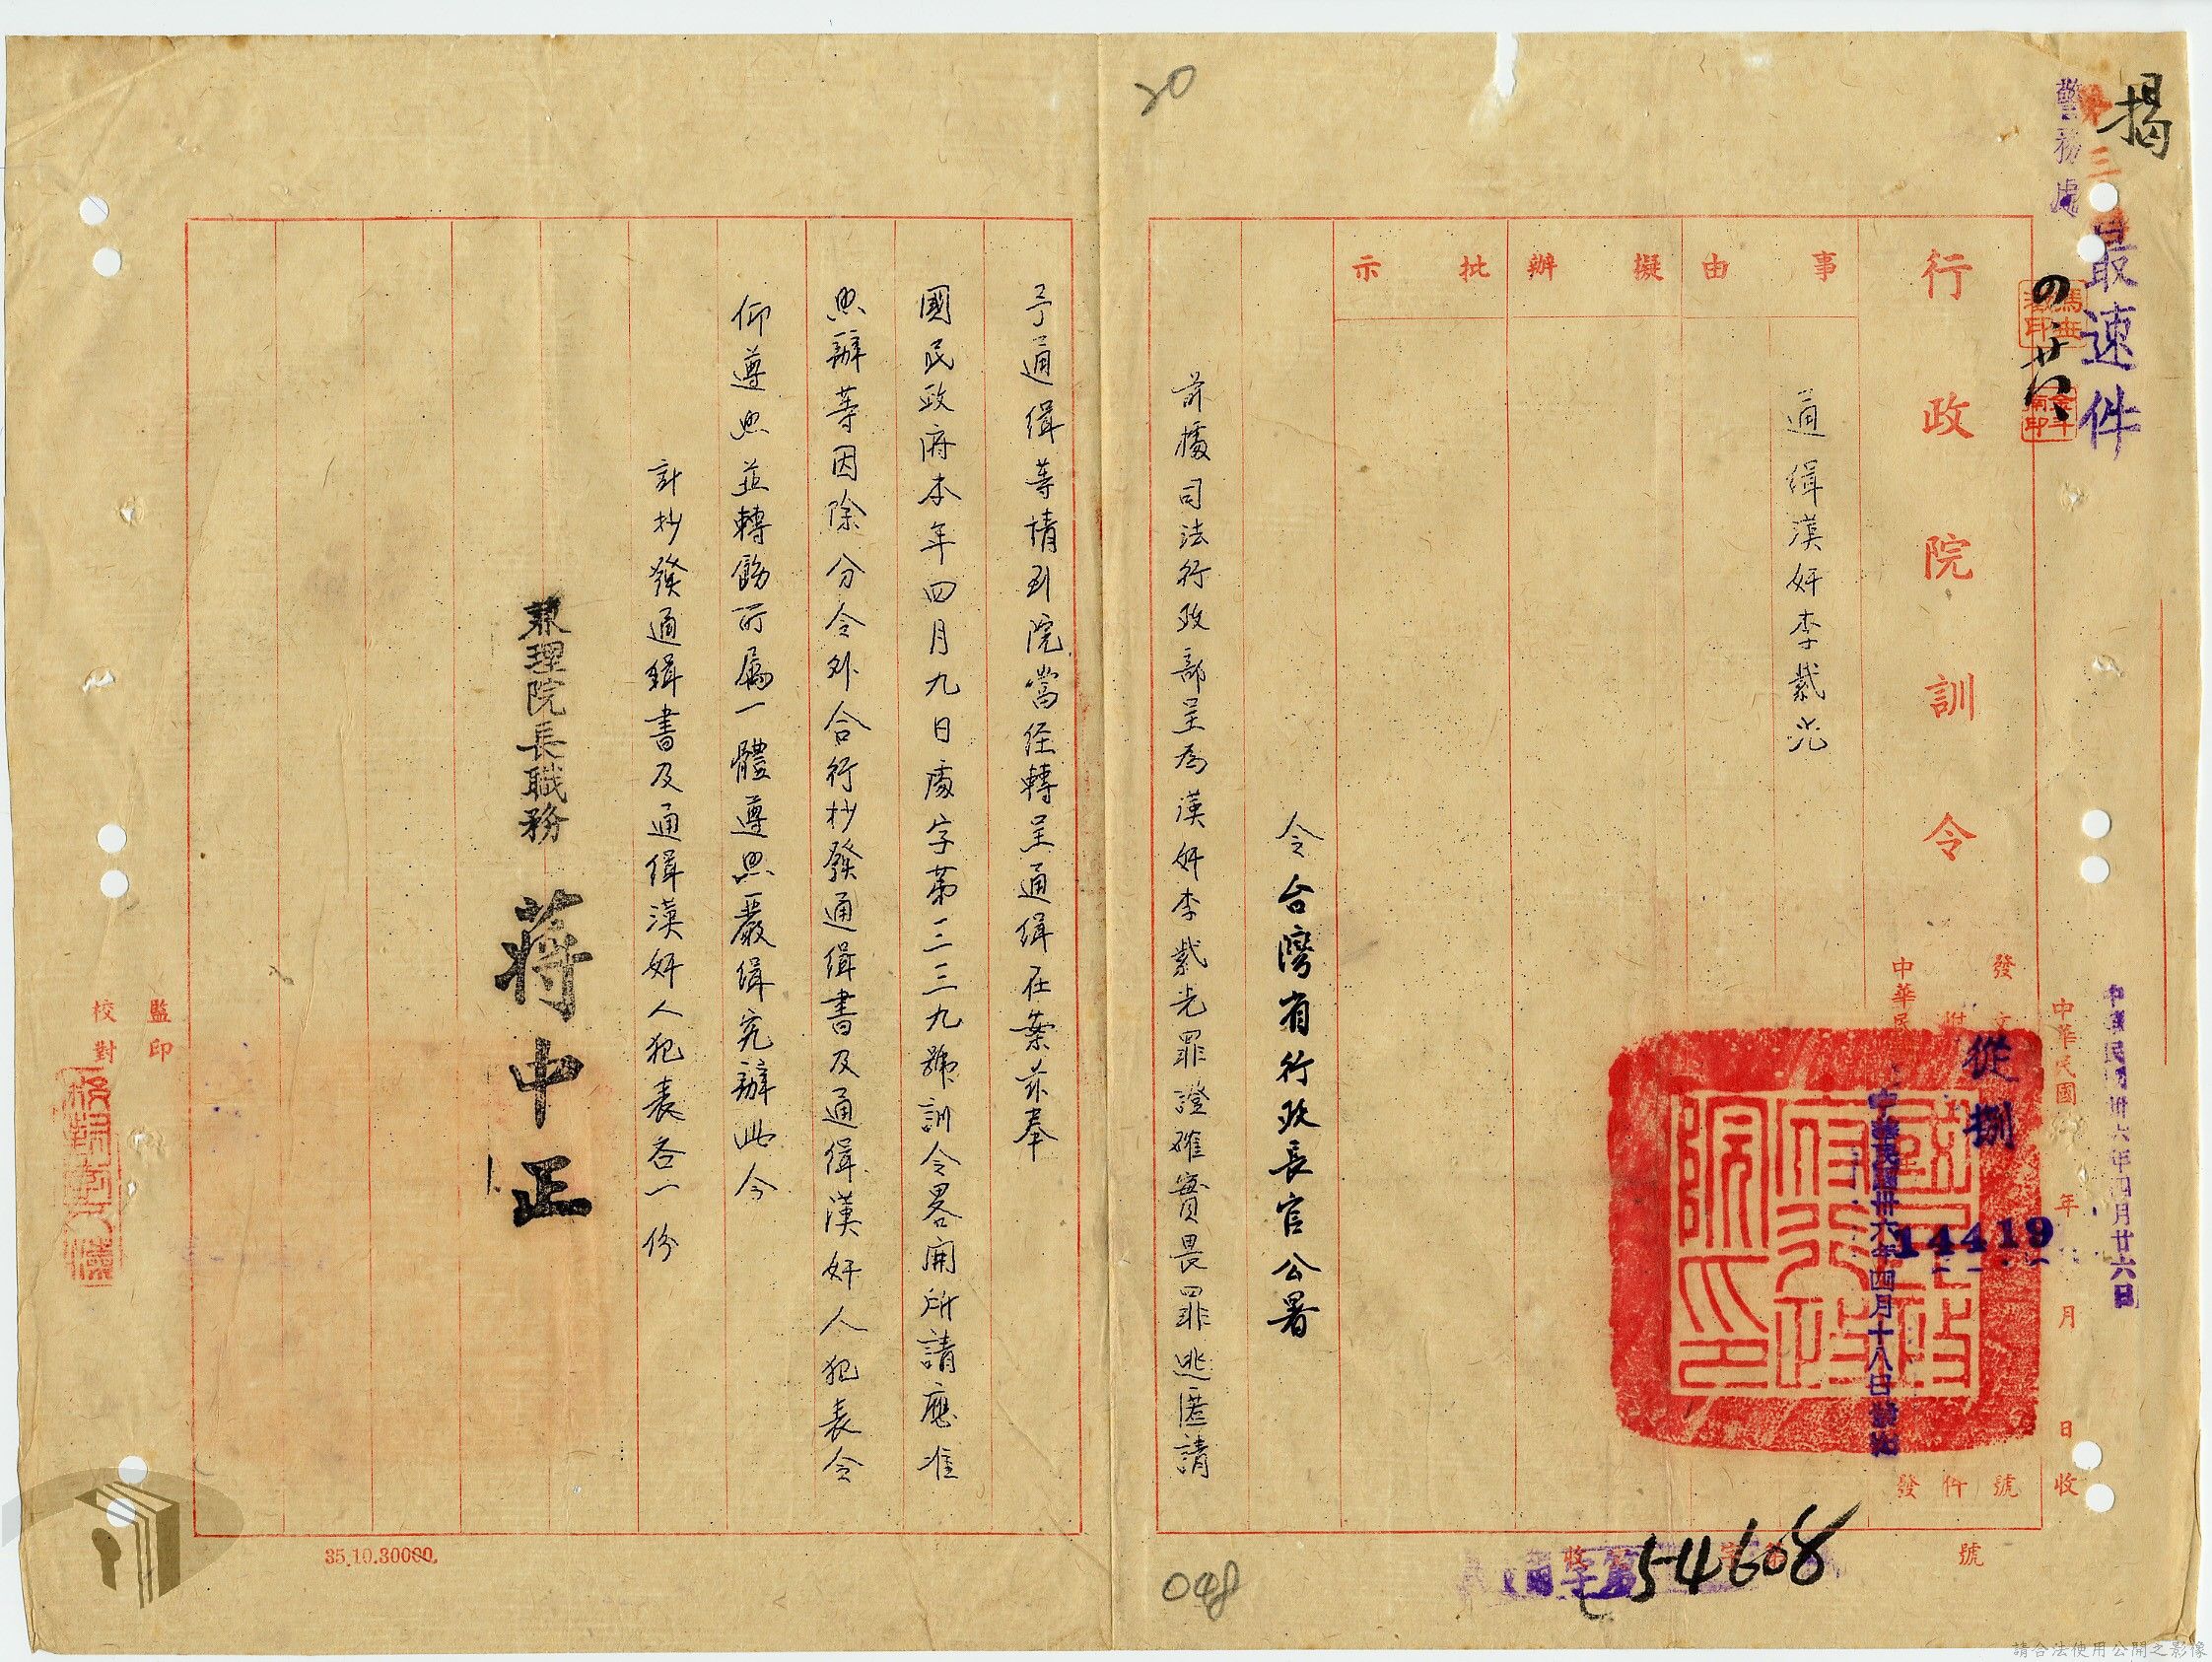 揭
警務處
最速件
の廿六
行政院訓令
事由
擬辦
批示
通緝漢奸李紫光
發文
從捌
14419
號
附件
中華民國卅六年四月十八日發出
發
中華民國 年 月 日收
中華民國卅六年四月廿六日
收 字第54608號
令台灣省行政長官公署
前據司法行政部呈為漢奸李紫光罪證確實畏罪逃匿請
予通緝等情到院當經轉呈通緝在案茲奉
國民政府本年四月九日處字第三三九號訓令畧開所請應准
照辦等因除分令外合行抄發通緝書及通緝漢奸人犯表令
仰遵照並轉飭所屬一體遵照嚴緝究辦此令
計抄發通緝書及通緝漢奸人犯表各一份
兼理院長職務 蔣中正
監印
校對
20
048
35.10.30000.
請合法使用公開之影像